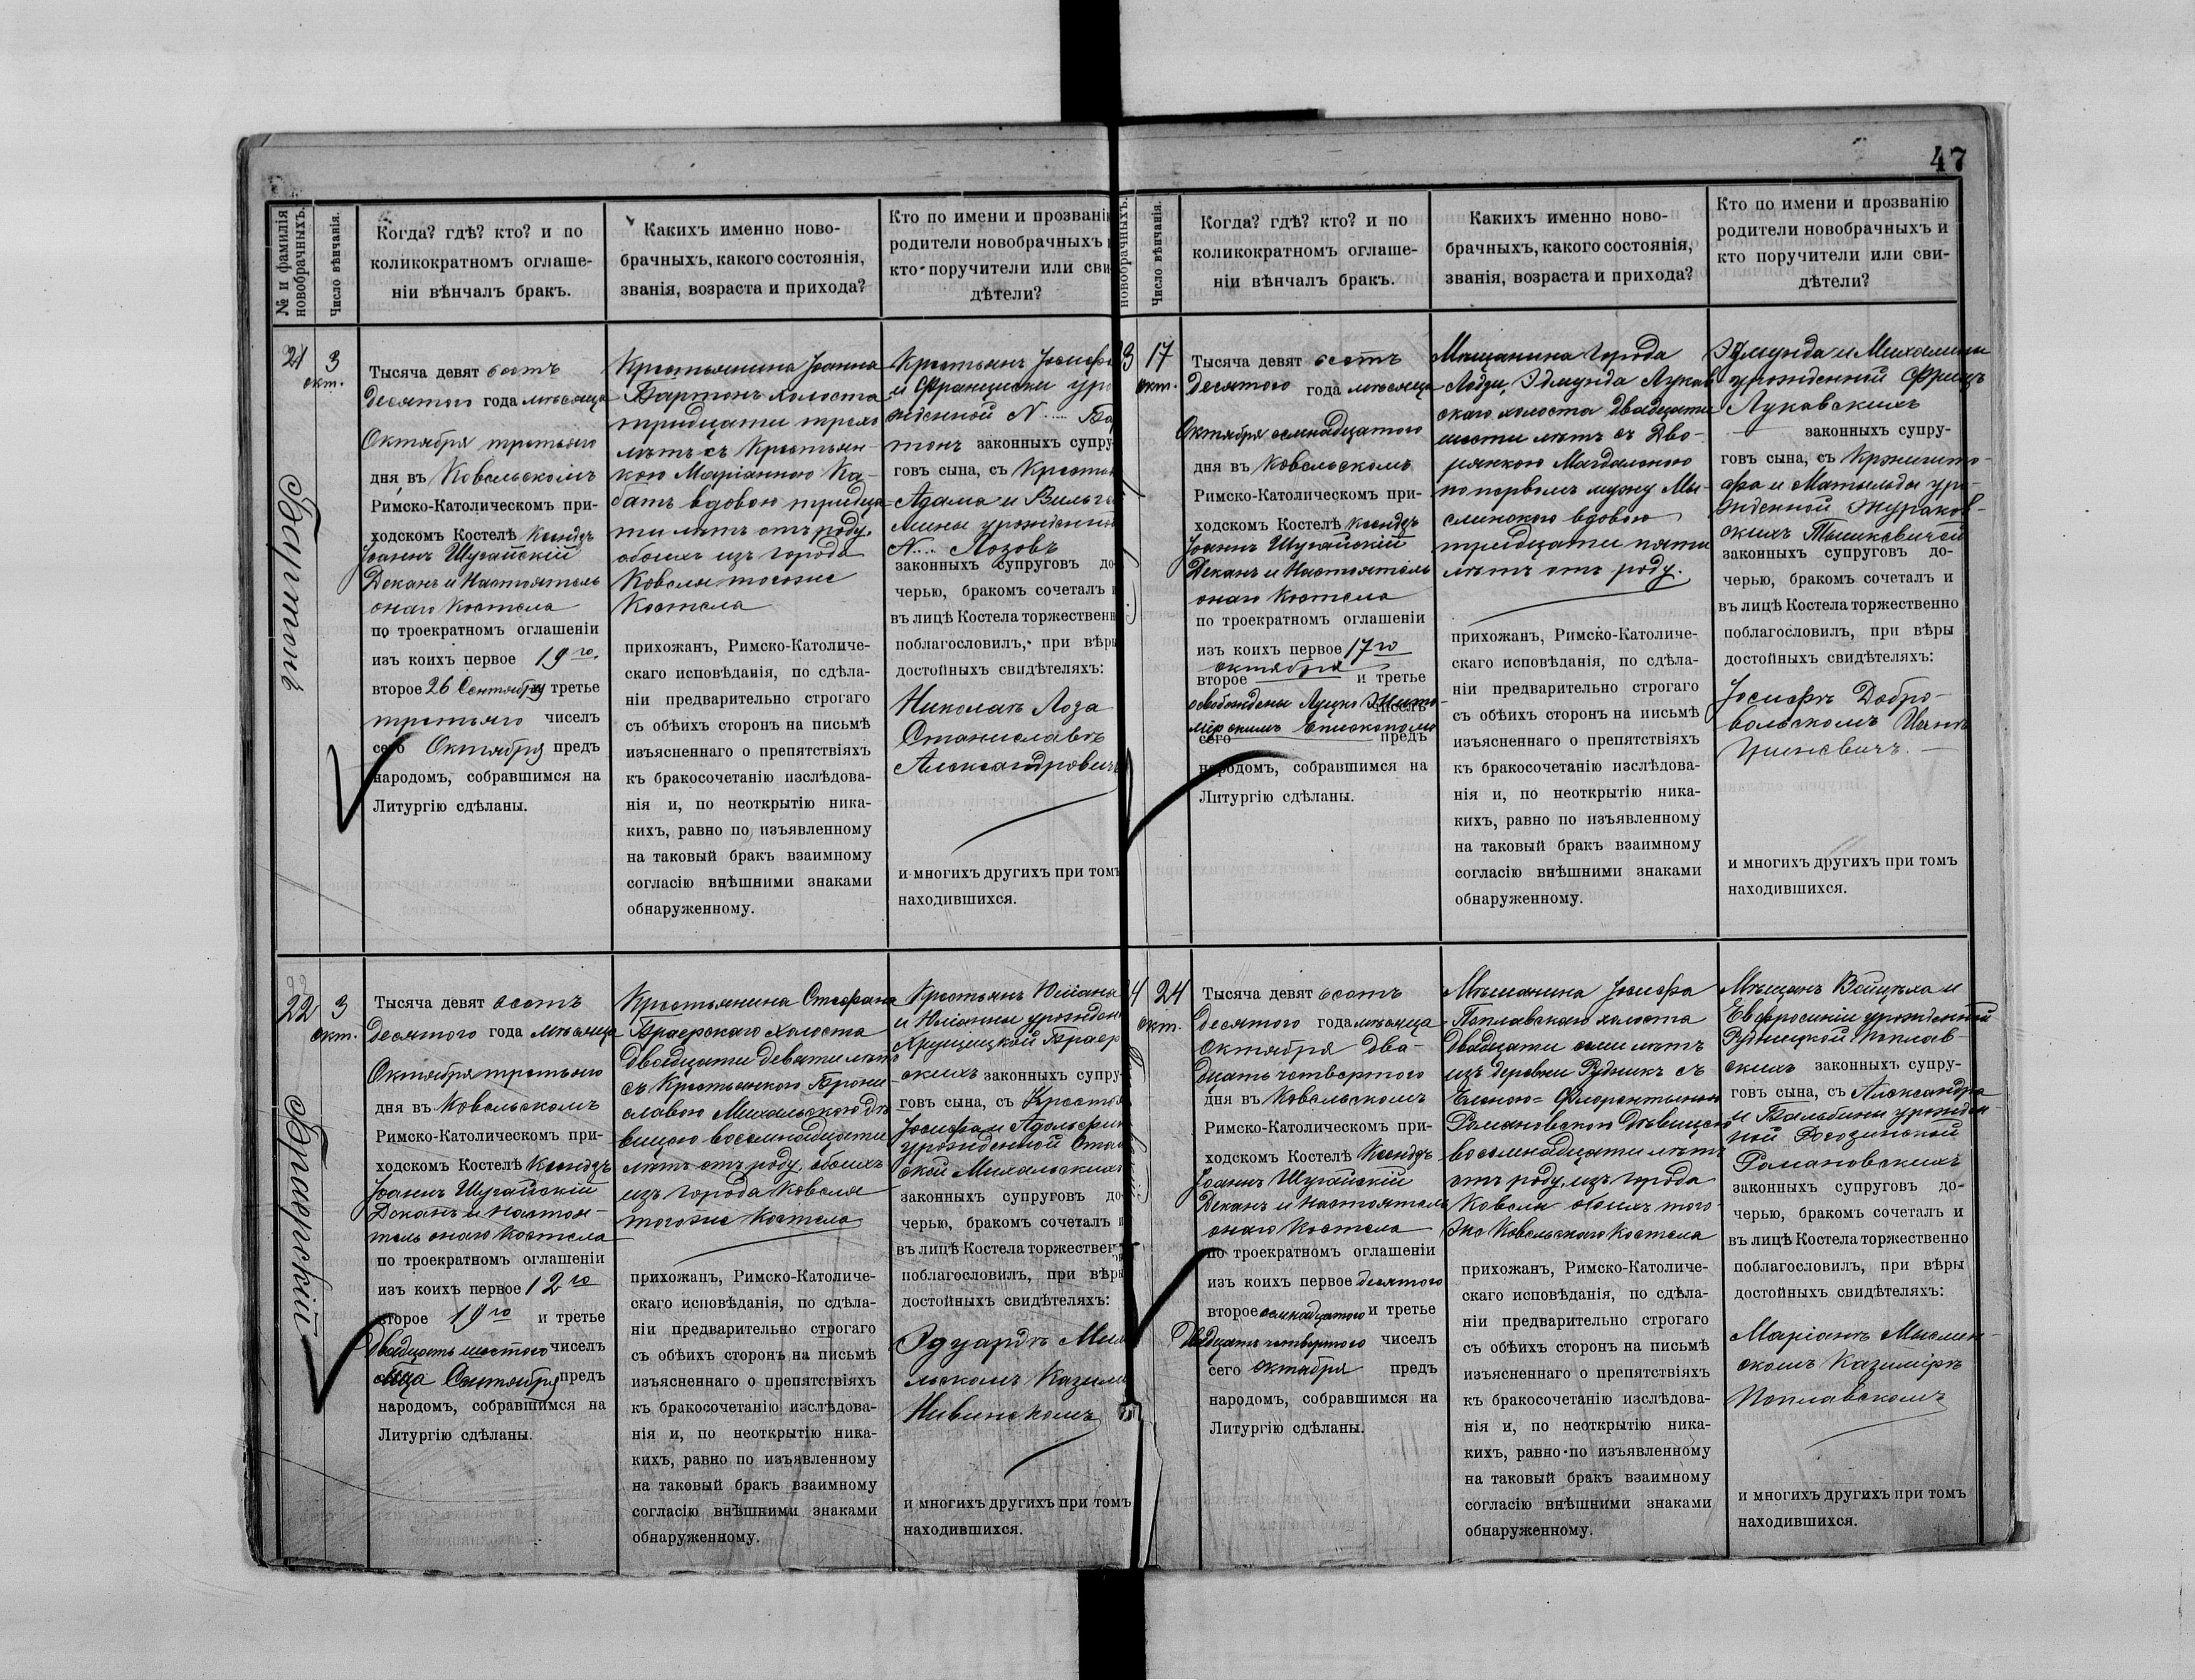 47
№ и фамилія
новобрачныхъ.
Число вѣнчанія.
Когда? гдѣ? кто? и по
коликократномъ оглаше-
ніи вѣнчалъ бракъ.
Какихъ именно ново-
брачныхъ, какого состоянія,
званія, возраста и прихода?
Кто по имени и прозванію
родители новобрачныхъ
кто поручители или сви
дѣтели?
21
3
окт.
Бартонъ
Тысяча девят сотъ
Десятого года мѣсяца
Октября третьяго
дня въ Ковельскомъ
Римско-Католическомъ при-
ходскомъ Костелѣ Ксендзъ
Іоаннъ Шугайскій
Деканъ и Настоятель
онаго Костела
по троекратномъ оглашеніи
изъ коихъ первое 19го
второе 26 Сентября третье
третьяго чиселъ
сего Октября предъ
народомъ, собравшимся на
Литургію сдѣланы.
Крестьянина Іоанна
Бартонъ холоста
тридцати трехъ
лѣтъ съ Крестьян-
кою Маріанною Ка-
батъ вдовою тридца
ти лѣтъ отъ роду,
обоихъ изъ города
Ковеля тогоже
Костела
прихожан, Римско-Католиче-
скаго исповѣданія, по сдѣла-
ніи предварительно строгаго
съ обѣихъ сторонъ на письмѣ
изъясненнаго о препятствіяхъ
къ бракосочетанію изслѣдова-
нія и, по неоткрытію ника-
кихъ, равно по изъявленному
на таковый бракъ взаимному
согласію внѣшними знаками
обнаруженному.
Крестьянъ Іосифа
и Франциски уро
жденной N.... Ба
тонъ законныхъ супру
говъ сына, съ Крестьян
Адама и Вильге
мины урожденной
N.... Лозовъ
законныхъ супруговъ до
черью, бракомъ сочеталъ
въ лицѣ Костела торжественн
поблагословилъ, при вѣры
достойныхъ свидѣтеляхъ:
Николаъ Лоза
Станиславъ
Александровичъ
и многихъ другихъ при томъ
находившихся.
22
3
окт.
Браерскій
Тысяча девят сотъ
десятого года мѣсяца
Октября третьяго
дня въ Ковельскомъ
Римско-Католическомъ при-
ходскомъ Костелѣ Ксендзъ
Іоаннъ Шугайскій
Деканъ и Настоя-
тель онаго Костела
по троекратномъ оглашеніи
изъ коихъ первое 12го
второе 19го и третье
двадцать шестого чиселъ
Сентября предъ
народомъ, собравшимся на
Литургію сдѣланы.
Крестьянина Стефана
Браерскаго холоста
двадцати девяти лѣтъ
съ Крестьянкою Брони
славою Михальскою дѣ
вицею восемнадцати
лѣтъ отъ роду, обоихъ
изъ города Ковеля
тогоже Костела
прихожан, Римско-Католиче-
скаго исповѣданія, по сдѣла-
ніи предварительно строгаго
съ обѣихъ сторонъ на письмѣ
изъясненнаго о препятствіяхъ
къ бракосочетанію изслѣдова-
нія и, по неоткрытію ника-
кихъ, равно по изъявленному
на таковый бракъ взаимному
согласію внѣшними знаками
обнаруженному.
Крестьянъ Юліана
и Юліанны урожден
Браер
скихъ законныхъ супру
говъ сына, съ Крестьян
Іосифа и Адольфины
урожденной
ской Михальскихъ
законныхъ супруговъ до
черью, бракомъ сочеталъ
въ лицѣ Костела торжествен
поблагословилъ, при вѣры
достойныхъ свидѣтеляхъ:
Эдуардъ Миха
льскомъ Казими
Нивинскомъ
и многихъ другихъ при томъ
находившихся.
новобрачныхъ.
Число вѣнчанія.
Когда? гдѣ? кто? и по
коликократномъ оглаше-
ніи вѣнчалъ бракъ.
Какихъ именно ново-
брачныхъ, какого состоянія,
званія, возраста и прихода?
Кто по имени и прозванію
родители новобрачныхъ и
кто поручители или сви-
дѣтели?
3
17
окт.
Тысяча девят сотъ
Десятого года мѣсяца
Октября семнадцатого
дня въ Ковельскомъ
Римско-Католическомъ при-
ходскомъ Костелѣ Ксендзъ
Іоаннъ Шугайскій
Деканъ и Настоятель
онаго Костела
по троекратномъ оглашеніи
изъ коихъ первое 17го
октября
второе и третье
освобождены Луцко-Жито-
чиселъ
мірскимъ Епископомъ
сего предъ
народомъ, собравшимся на
Литургію сдѣланы.
Мѣщанина города
Лодзи, Эдмунда Луков
скаго холоста двадцати
шести лѣтъ съ Дво-
рянкою Магдаленою
по первомъ мужу Мы-
слинскою вдовою
тридцати пяти
лѣтъ отъ роду.
прихожан, Римско-Католиче-
скаго исповѣданія, по сдѣла-
ніи предварительно строгаго
съ обѣихъ сторонъ на письмѣ
изъясненнаго о препятствіяхъ
къ бракосочетанію изслѣдова-
нія и, по неоткрытію ника-
кихъ, равно по изъявленному
на таковый бракъ взаимному
согласію внѣшними знаками
обнаруженному.
Эдмунда и Михалины
урожденной Фрицъ
Луковскихъ
законныхъ супру-
говъ сына, съ Кржишто-
фа и Матильды уро-
жденной Жураков-
скихъ Тышкевичей
законныхъ супруговъ до-
черью, бракомъ сочеталъ и
въ лицѣ Костела торжественно
поблагословилъ, при вѣры
достойныхъ свидѣтеляхъ:
Іосифъ Добро-
вольскомъ Иванъ
Гриневичъ
и многихъ другихъ при томъ
находившихся.
4
24
окт.
Тысяча девят сотъ
десятого года мѣсяца
Октября два-
дцать четвертого
дня въ Ковельскомъ
Римско-Католическомъ при-
ходскомъ Костелѣ Ксендзъ
Іоаннъ Шугайскій
Деканъ и Настоятель
онаго Костела
по троекратномъ оглашеніи
изъ коихъ первое десятого
второе семнадцатого и третье
двадцать четвертого чиселъ
сего октября предъ
народомъ, собравшимся на
Литургію сдѣланы.
Мѣщанина Іосифа
Поплавскаго холоста
двадцати семи лѣтъ
изъ деревни Рудникъ съ
Еленою=Флорентиною
Романовскою дѣвицею
восемнадцати лѣтъ
отъ роду, изъ города
Ковеля обоихъ того
же Ковельскаго Костела
прихожан, Римско-Католиче-
скаго исповѣданія, по сдѣла-
ніи предварительно строгаго
съ обѣихъ сторонъ на письмѣ
изъясненнаго о препятствіяхъ
къ бракосочетанію изслѣдова-
нія и, по неоткрытію ника-
кихъ, равно по изъявленному
на таковый бракъ взаимному
согласію внѣшними знаками
обнаруженному.
Мѣщанъ Войцѣха и
Евфросиніи урожденной
Рудницкой Поплав-
скихъ законныхъ супру-
говъ сына, съ Александра
и Бальбины урожден
ной Рогозинской
Романовскихъ
законныхъ супруговъ до-
черью, бракомъ сочеталъ и
въ лицѣ Костела торжественно
поблагословилъ, при вѣры
достойныхъ свидѣтеляхъ:
Маріанъ Мыслин-
скомъ Казиміръ
Поплавскомъ
и многихъ другихъ при томъ
находившихся.